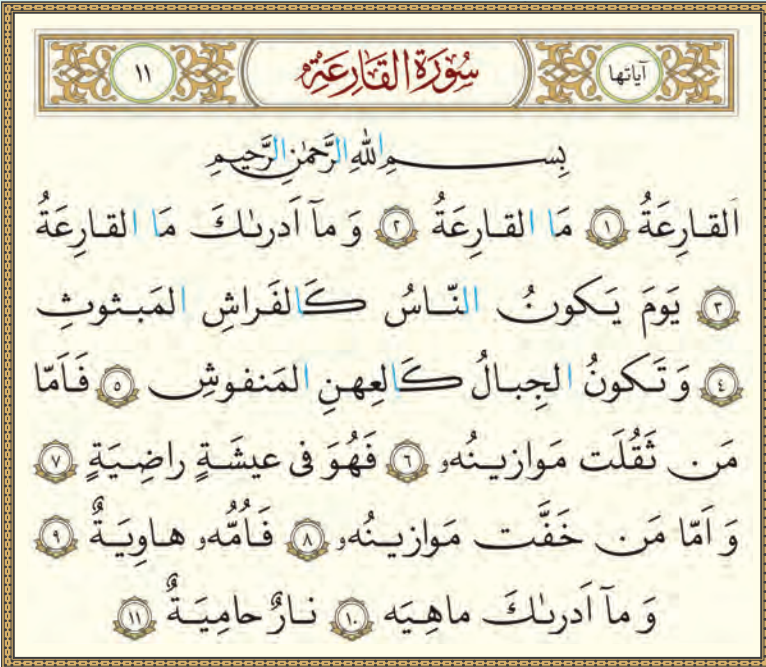 آیاتها سُورَةُ القَارِعَةِ ١١
بِسمِ اللهِ الرَّحمٰنِ الرَّحیمِ
اَلقارِعَةُ ١ مَا القارِعَةُ ٢ وَ ماۤ اَدرىٰكَ مَا القارِعَةُ
٣ یَومَ یَكونُ النّاسُ كَالفَراشِ المَبثوثِ
٤ وَ تَكونُ الجِبالُ كَالعِهنِ المَنفوشِ ٥ فَاَمّا
مَن ثَقُلَت مَوازینُهو ٦ فَهُوَ فی عیشَةٍ راضِیَةٍ ٧
وَ اَمّا مَن خَفَّت مَوازینُهو ٨ فَاُمُّهو هاوِیَةٌ ٩
وَ ماۤ اَدرىٰكَ ماهِیَه ١٠ نارٌ حامِیَةٌ ١١